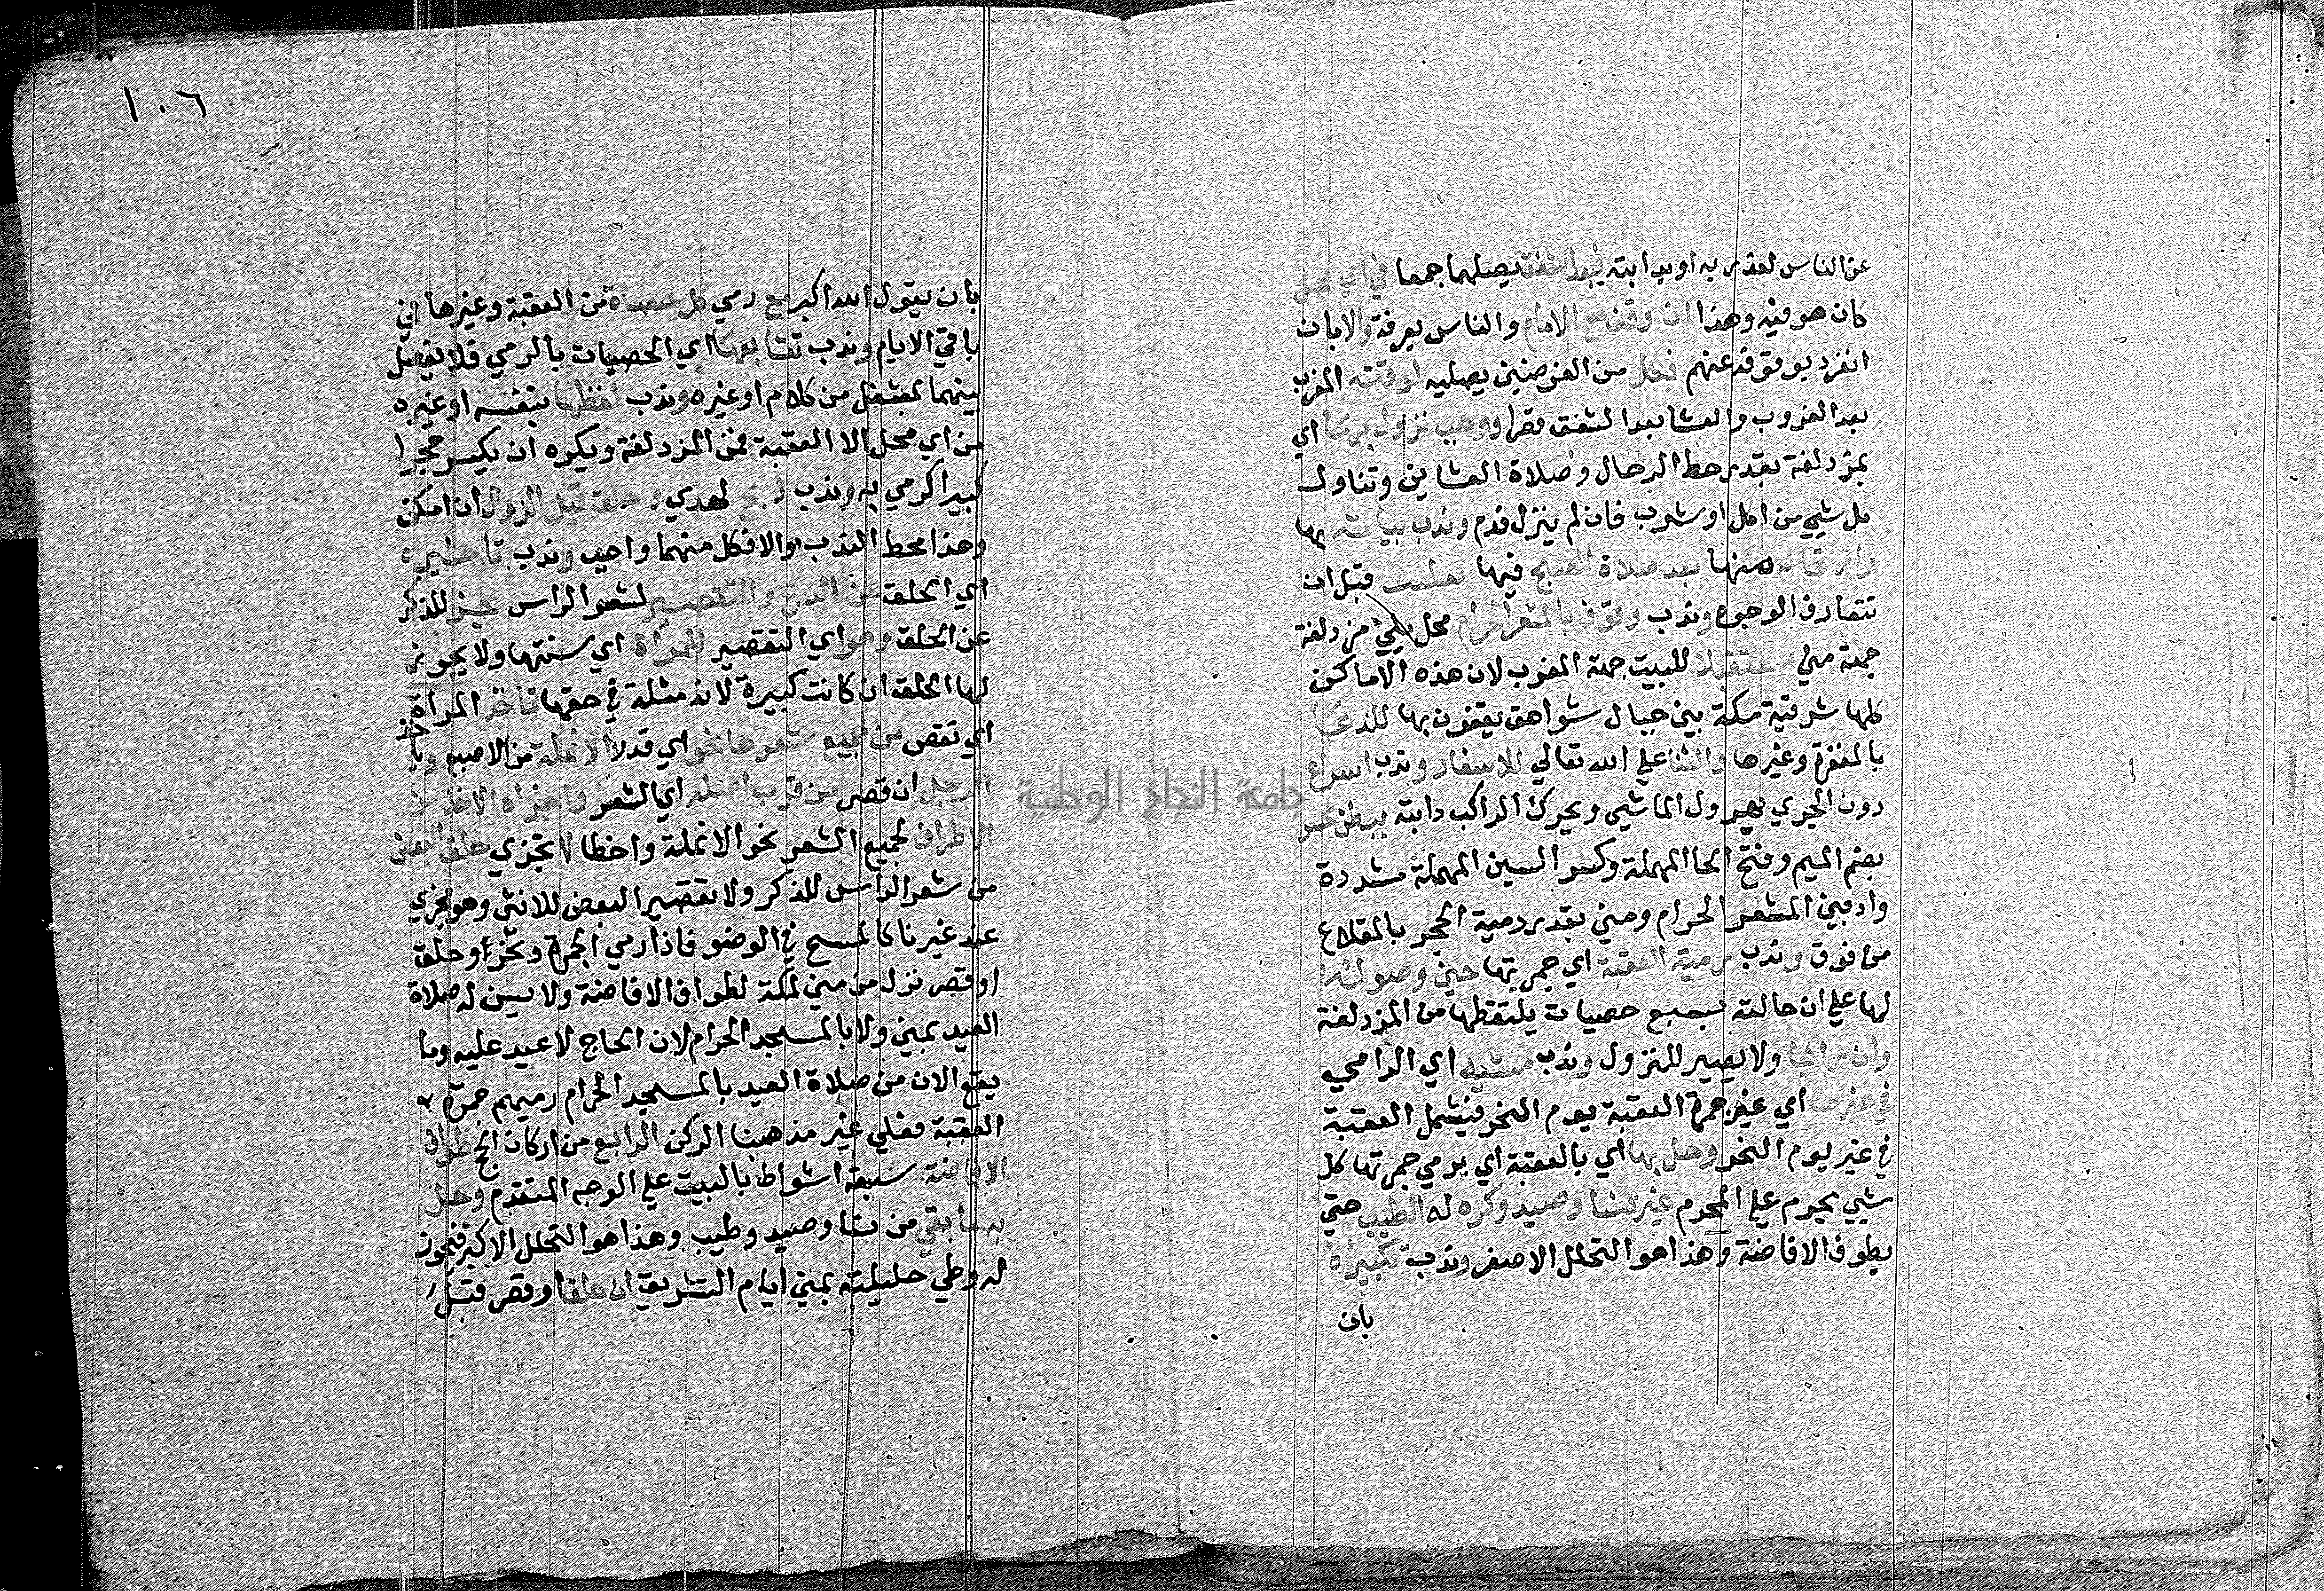 عن الناس لعذر به او بدابته فبعد الشفق يصليهما جمعا في اي محل
كان هو فيه وهذا ان وقف مع الامام والناس بعرفة والا بان
انفرد بوقوفه عنهم فكل من الفرضين يصليه لوقته المغرب
بعد الغروب والعشا بعد الشفق قصرا ووجب نزوله بها اي
بمزدلفة بقدر حط الرحال وصلاة العشاين وتناول
كل شيي من اكل او شرب فان لم ينزل فدم وندب بياته بها
وارتحاله منها بعد صلاة الصبح فيها بغلس قبل ان
تتعارف الوجوه وندب وقوف بالمشعر الحرام محل يلي مزدلفة
جهة منى مستقبلا للبيت جهة المغرب لان هذه الاماكن
كلها شرقية مكة بين جبال شواهق يقفون بها للدعا
بالمغفرة وغيرها والثنا علي الله تعالي للاسفار وندب اسراع
دون الجري يهرول الماشي ويحرك الراكب دابته ببطن محسر
بضم الميم وفتح الحا المهملة وكسر السين المهملة مشددة
واد بين المشعر الحرام ومني بقدر رمية الحجر بالمقلاع
من فوق وندب رمية العقبة اي جمرتها حين وصوله
لها علي ان حالته بسبع حصيات يلتقطها من المزدلفة
وان راكبا ولا يصير للنزول وندب مشيه اي الرامي
في غيرها اي غير جمرة العقبة يوم النحر فيشمل العقبة
في غير يوم النحر وحل بها اي بالعقبة اي برمي جمرتها كل
شيي يحرم علي المحرم غير نسا وصيد وكره له الطيب حتي
يطوف الافاضة وهذا هو التحلل الاصغر وندب تكبيره
بان
١٠٦
بان يقول الله اكبر مع رمي كل حصاة من العقبة وغيرها في
باقي الايام وندب تتابعها اي الحصيات بالرمي فلا يفصل
بينهما بمشغل من كلام او غيره وندب لقطها بنفسه او غيره
من اي محل الا العقبة فمن المزدلفة ويكره ان يكسر حجرا
كبيرا كرمي به وندب ذبح لهدي وحلق قبل الزوال ان امكن
وهذا محط الندب والا فكل منهما واجب وندب تاخيره
اي الحلق عن الذبح والتقصير لشعر الراس مجز للذكر
عن الحلق وهو اي التقصير للمراة اي سنتها ولا يجوز
لها الحلق ان كانت كبيرة لانه مثلة في حقها تاخذ المراة
اي تقص من جميع شعرها نحو اي قدر الانملة من الاصبع وياخذ
الرجل ان قصر من قرب اصله اي الشعر واجزاه الاخذ من
الاطراف لجميع الشعر نحو الانملة واخطا لا تجزي حلق البعض
من شعر الراس للذكر ولا تقصير البعض للانثى وهو مجزي
عند غيرنا كالمسح في الوضو فاذا رمي الجمرة ونحر وحلق
او قصر نزل من مني لمكة لطواف الافاضة ولا يسن له صلاة
العيد بمني ولا بالمسجد الحرام لان الحاج لا عيد عليه وما
يقع الان من صلاة العيد بالمسجد الحرام رميهم جمرة
العقبة فعلي غير مذهبنا الركن الرابع من اركان الحج طواف
الافاضة سبعة اشواط بالبيت علي الوجه المتقدم وحل
به ما بقي من نسا وصيد وطيب وهذا هو التحلل الاكبر فيجوز
له وطي حليلته بمني ايام التشريق ان حلق او قصر قبل
جامعة النجاح الوطنية